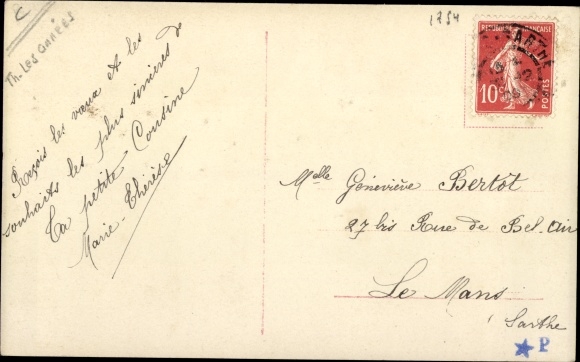 C
Th. Les Grâces
1254
REPUBLIQUE FRANÇAISE
10c
POSTES
ARTHE
Reçois les vœux et les
souhaits les plus sincères de
Ta petite Cousine
Marie-Thérèse
Melle Géneviève Bertot
27 bis Rue de Bel-air
Le Mans
Sarthe
P